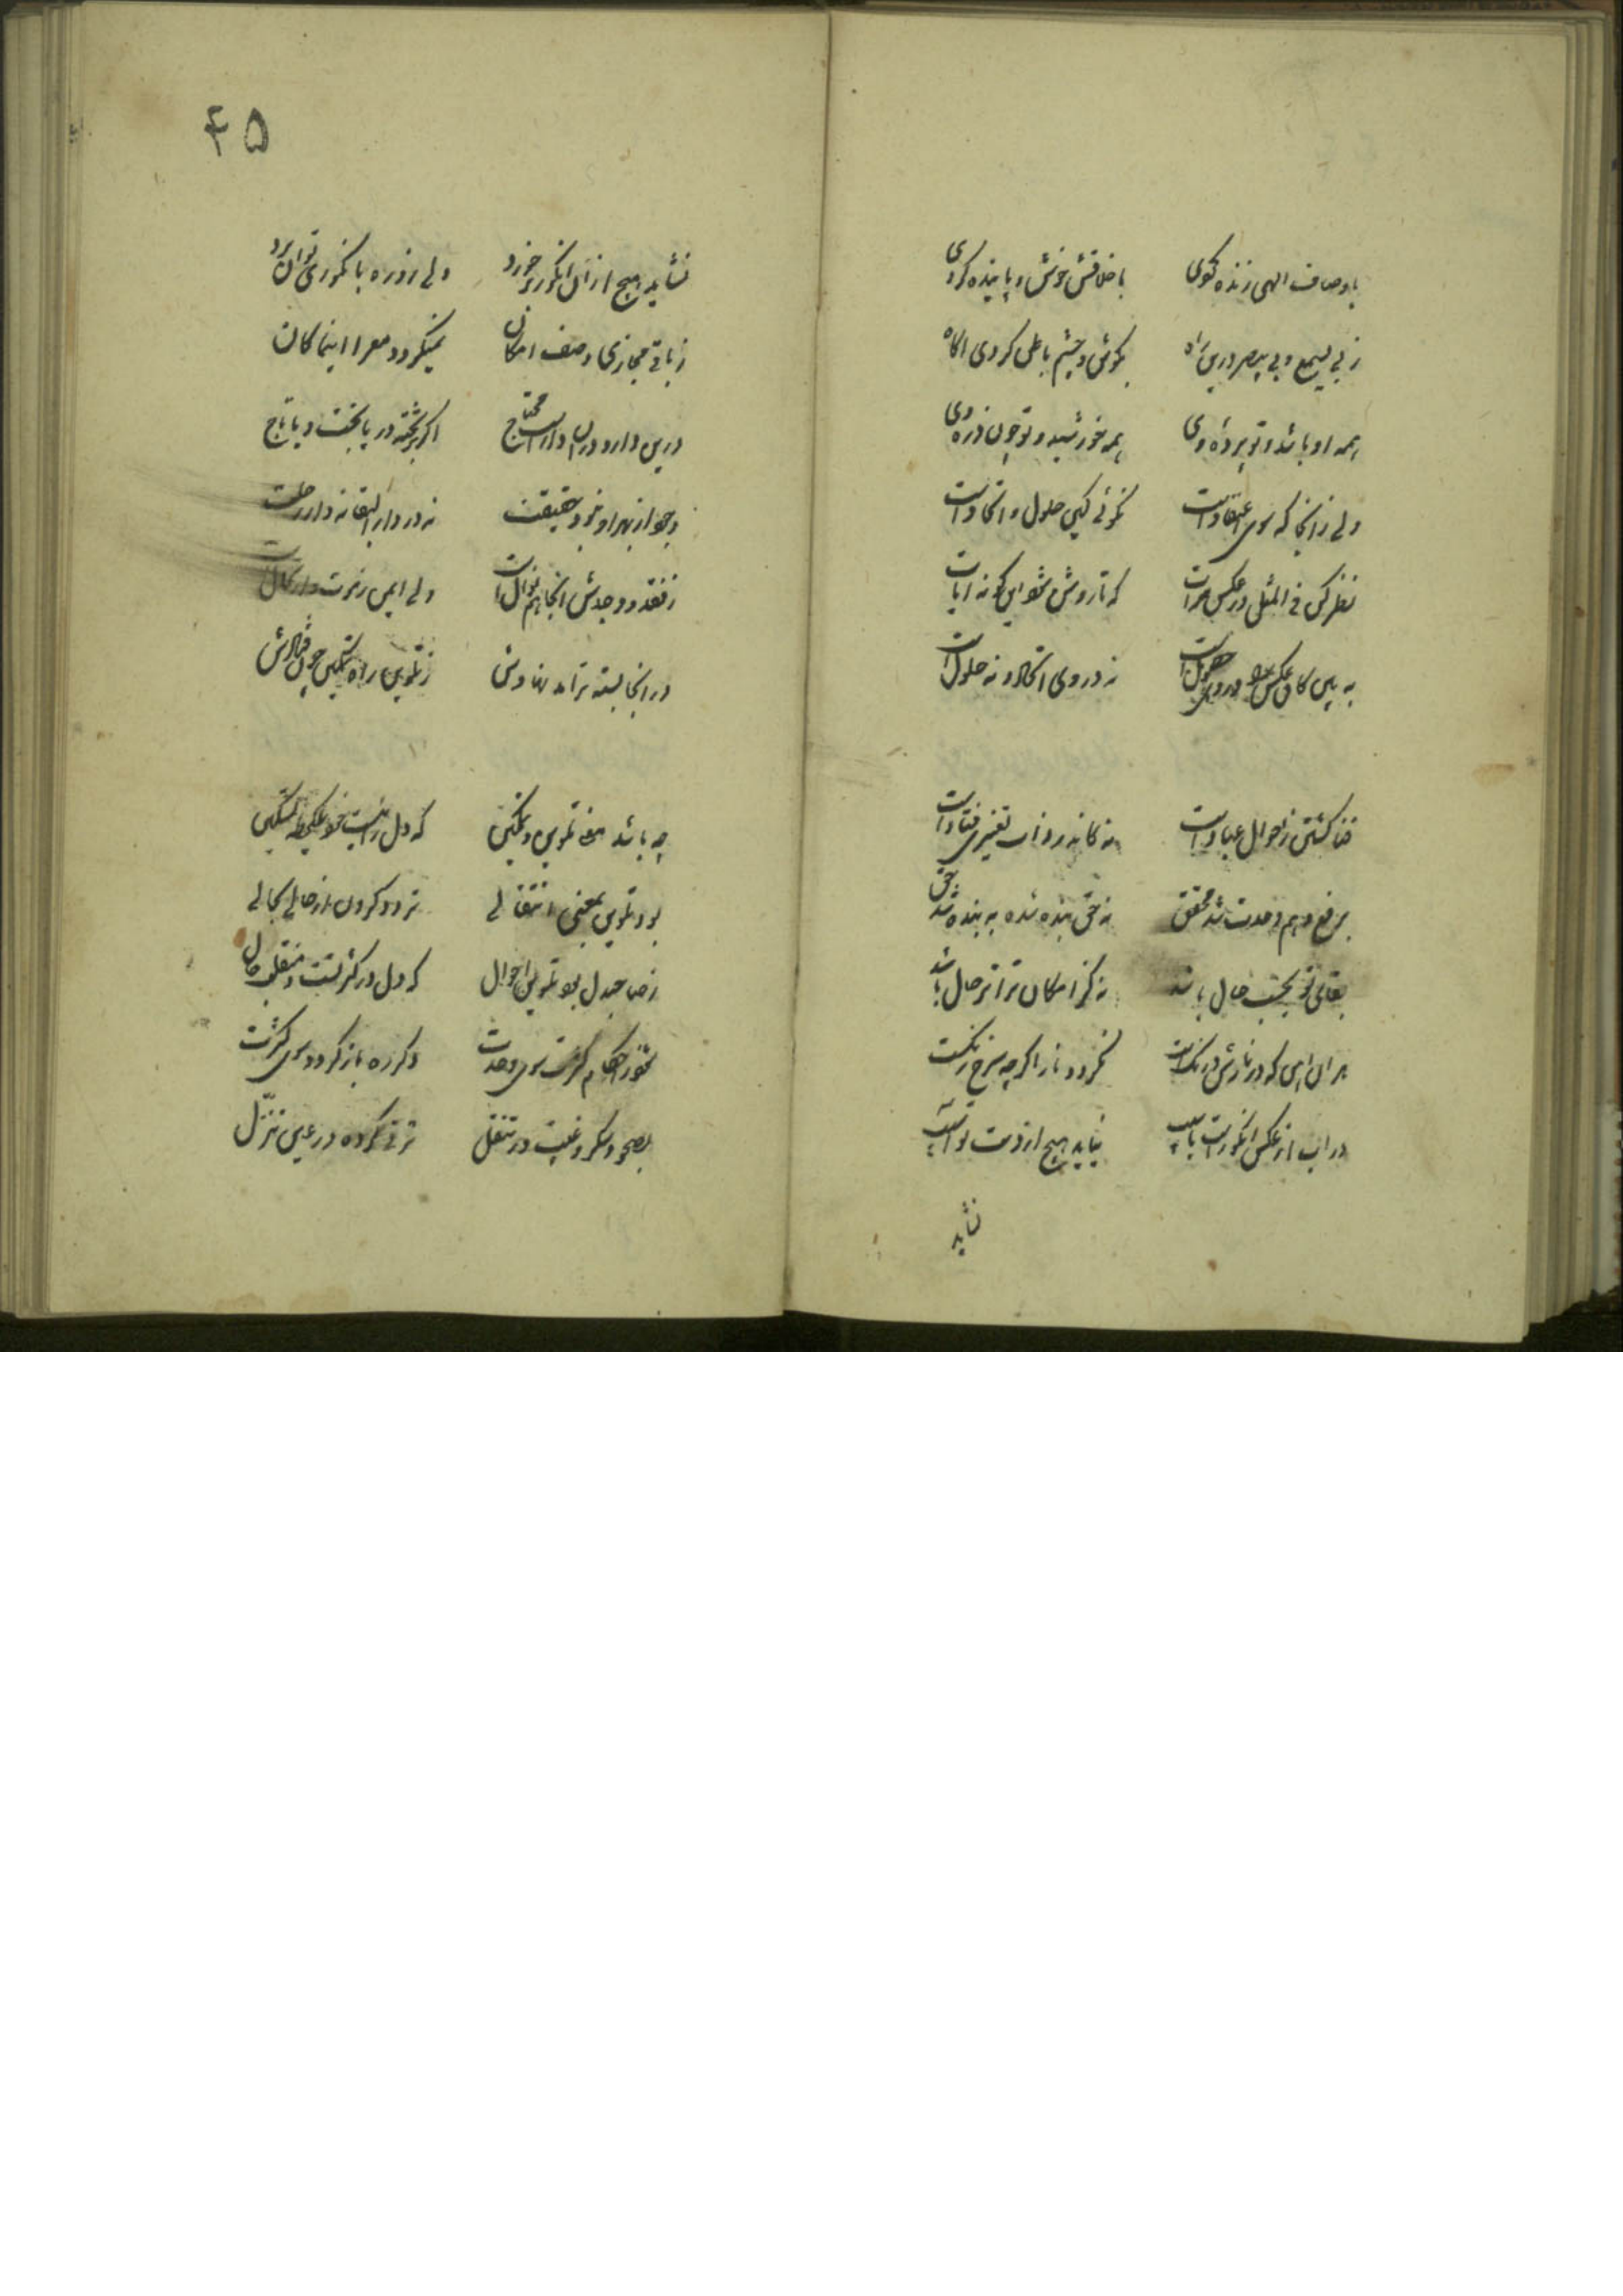 باوصاف الهی زنده گردی باخلاقش خوش و پاینده گردی
ز بی یسمع و بی یبصر درین راه بگوش و چشم باطن گردی اگاه
همه او باشد و تو پرده وی همه خورشید و تو چون ذره وی
ولی زانجا که سوی اعتقادست نگوئی کین حلول و اتحادست
نظر کن فی المثل در عکس مرات که تا روشن شود این گونه ایات
به بین کان عکس در وی نه در وی اتحاد و نه حلولست
فنا گشتن ز احوال عبادست نه کانرا در ذات تغییری فتادست
برفع وهم وحدت شد محقق نه حق بنده شده نه بنده شد حق
بقای تو بحسب حال باشد نه کز امکان ترا ترحال باشد
بر ان اهن که در نارش درنگست نگردد نار اگرچه سرخ رنگست
در اب از عکس انگورت نیاید هیچ از دست
نشاید
۴۵
نشاید هیچ ازان انگور بر خورد ولی زو ره بانگوری توان برد
ز باقی مجازی وصف امکان نمیگردد معرا اینما کان
درین دار و دران دارست محتاج اگر بر تخته در یا بتخت و با تاج
وجود از بهر او نبود حقیقت نه در دار البقا نه دار رحلت
ز فقد و وجدش انجا هم نوالست ولی ایمن
در انجا بسته ترا ز تلوین راه تمکین چون
چه باشد معنی تلوین و تمکین که دل را نیست خود یکلحظه تسکین
بود تلوین بمعنی انتقالی تردد کردن از حالی بحالی
ز صاحبدل بود تلوین احوال که دل در کثرتست و منقلب حال
شود احکام کثرت سوی وحدت دگر ره باز گردد سوی کثرت
بصحو و سکر و غیبت در تنقل ترقی کرده در عین تنزل